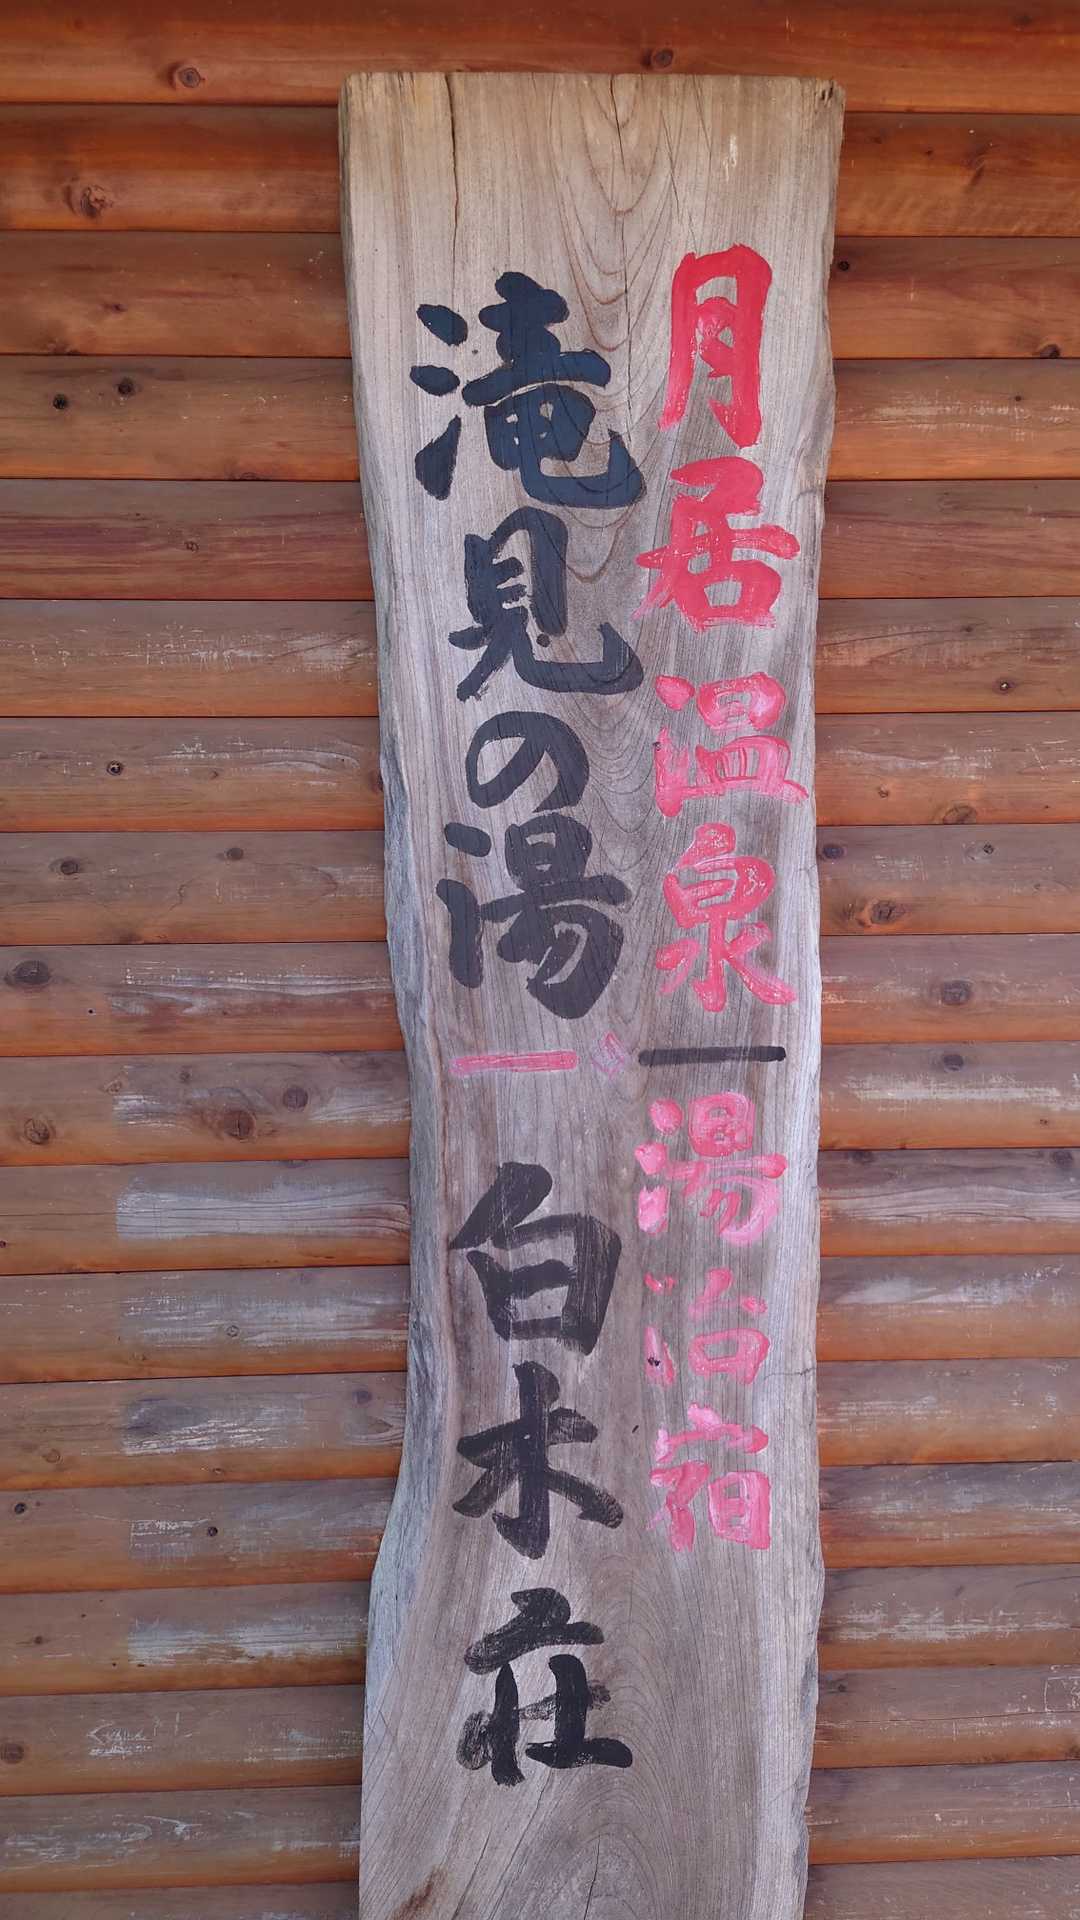 月居温泉ー湯治宿
滝見の湯ー白木荘